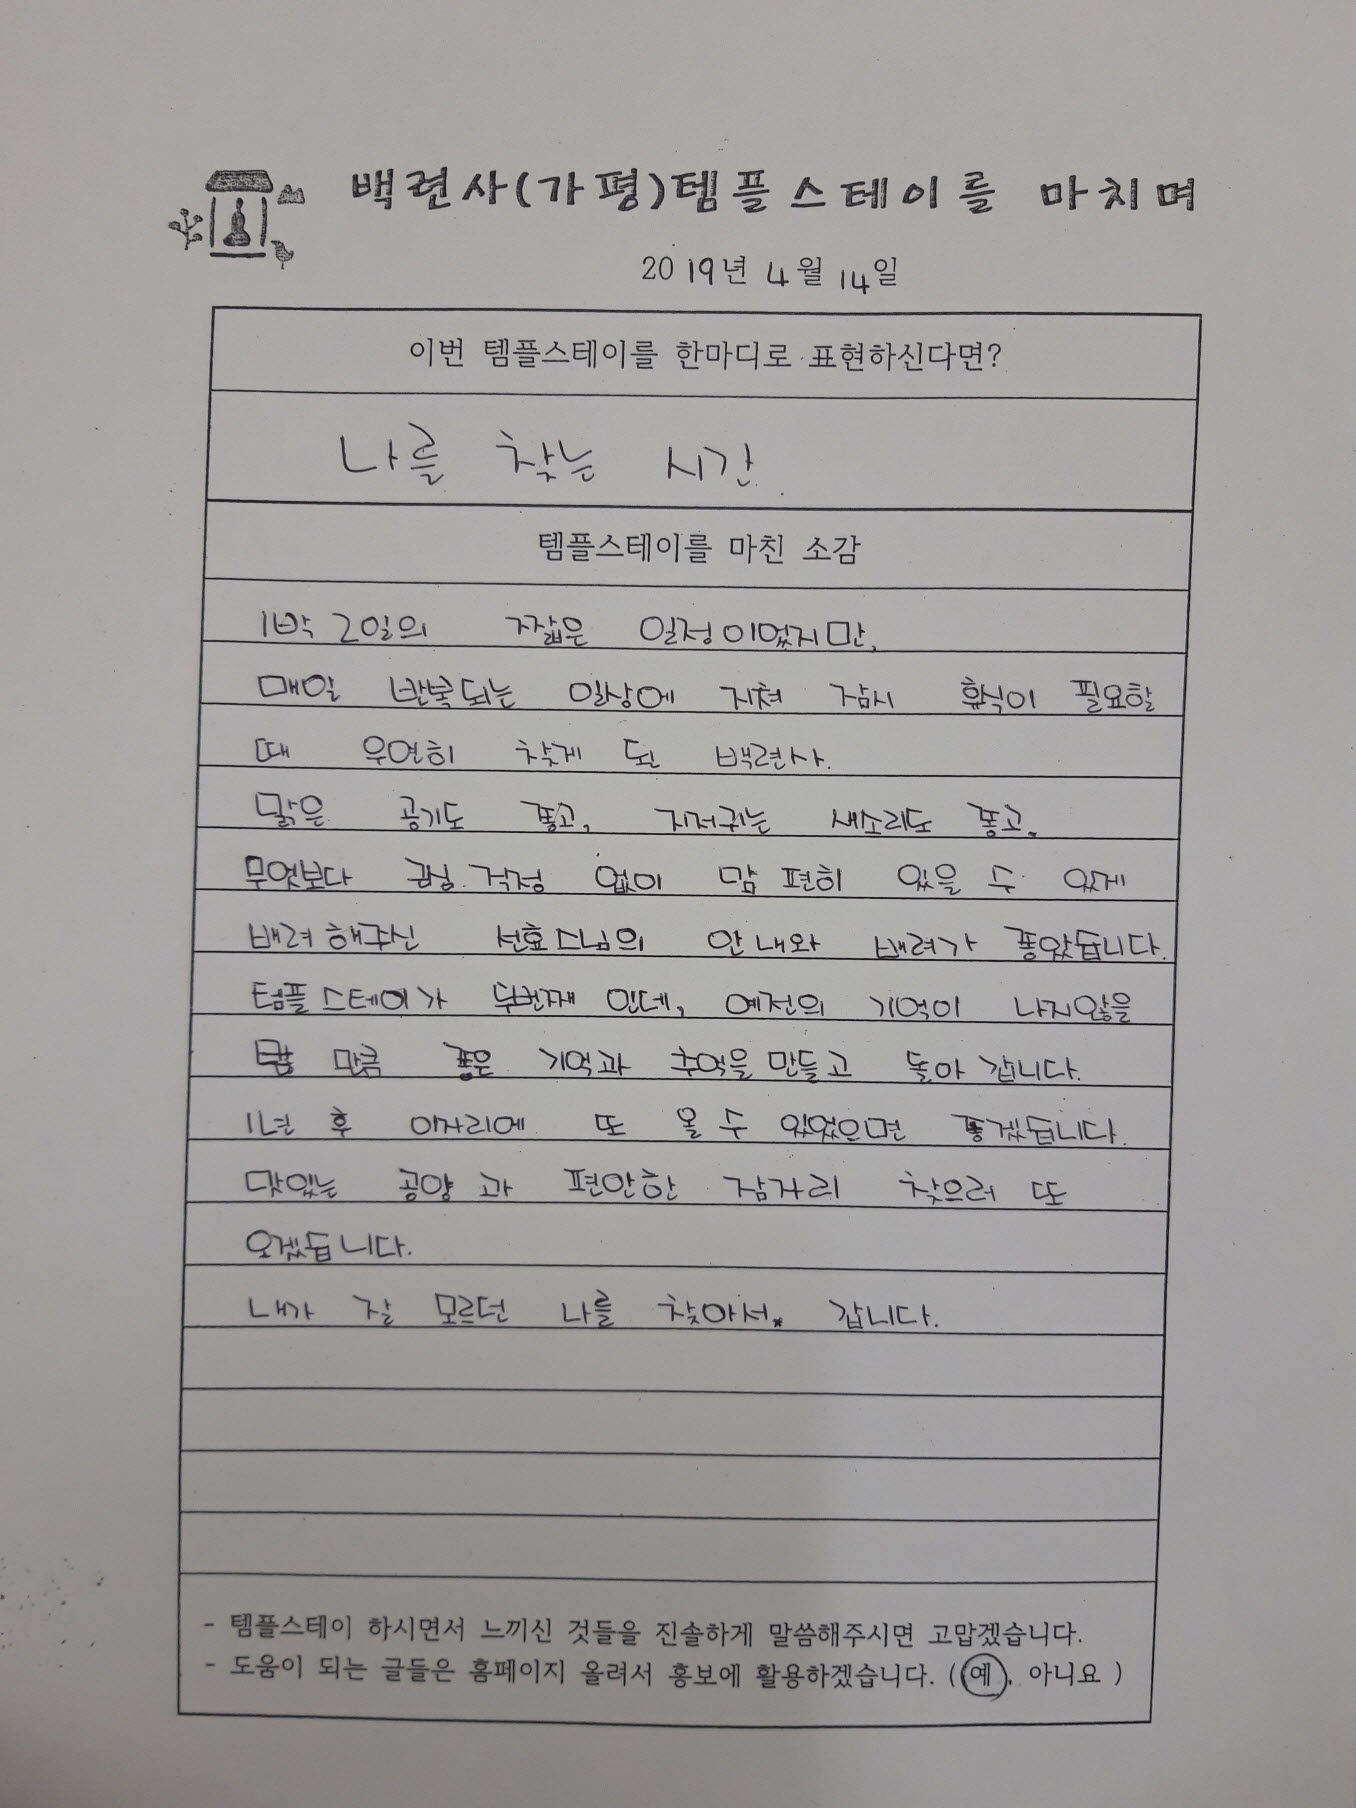 백련사(가평)템플스테이를 마치며
2019년 4월 14일
이번 템플스테이를 한마디로 표현하신다면?
나를 찾는 시간
템플스테이를 마친 소감
1박 2일의 짧은 일정이었지만,
매일 반복되는 일상에 지쳐 잠시 휴식이 필요할
때 우연히 찾게 된 백련사.
맑은 공기도 좋고, 지저귀는 새소리도 좋고.
무엇보다 걱정 없이 맘 편히 있을 수 있게
배려해주신 선효스님의 안내와 배려가 좋았습니다.
템플스테이가 두번째 인데, 예전의 기억이 나지않을
만큼 좋은 기억과 추억을 만들고 돌아 갑니다.
1년 후 이자리에 또 올 수 있었으면 좋겠습니다.
맛있는 공양과 편안한 잠자리 찾으러 또
오겠습니다.
내가 잘 모르던 나를 찾아서. 갑니다.
- 템플스테이 하시면서 느끼신 것들을 진솔하게 말씀해주시면 고맙겠습니다.
- 도움이 되는 글들은 홈페이지 올려서 홍보에 활용하겠습니다. (예, 아니요)